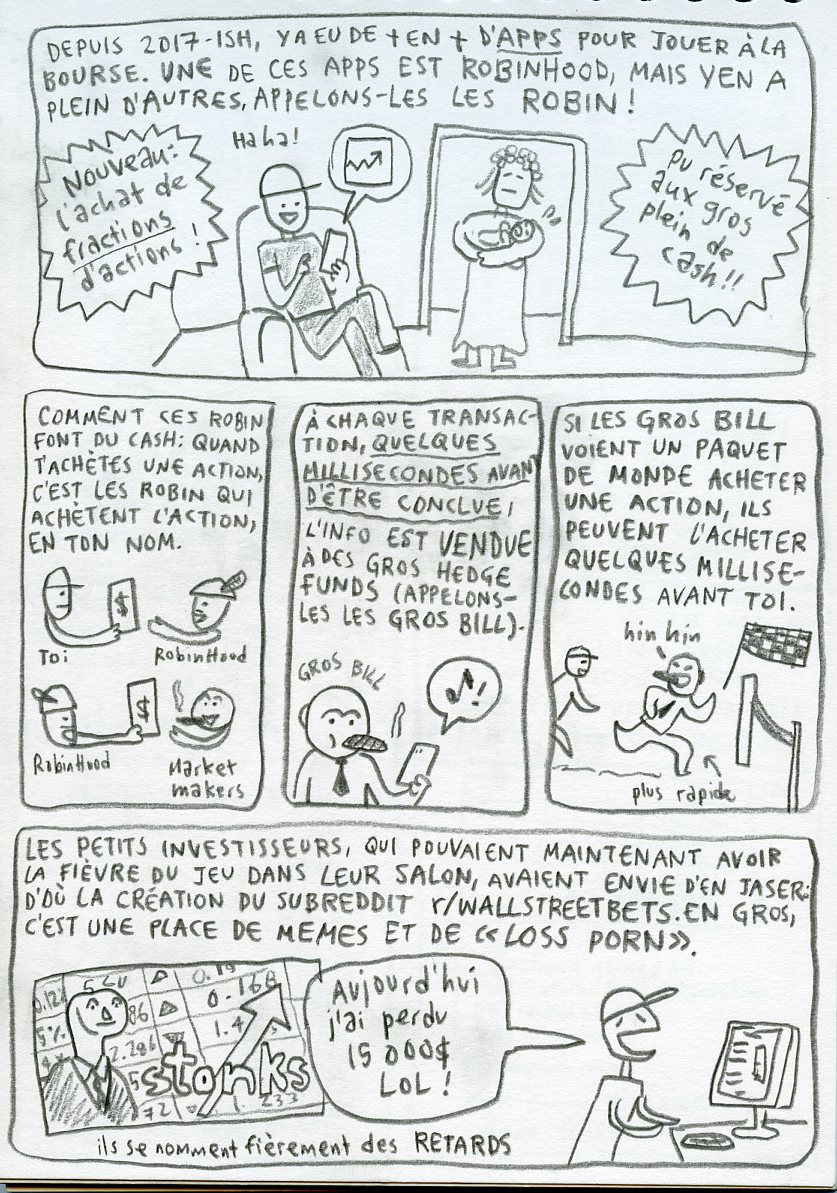 DEPUIS 2017-ISH, Y A EU DE + EN + D'APPS POUR JOUER À LA
BOURSE. UNE DE CES APPS EST ROBINHOOD, MAIS Y EN A
PLEIN D'AUTRES, APPELONS-LES LES ROBIN!
Nouveau:
l'achat de
fractions
d'actions!
Haha!
Pu réservé
aux gros
plein de
cash!!
COMMENT CES ROBIN
FONT DU CASH: QUAND
T'ACHÈTES UNE ACTION,
C'EST LES ROBIN QUI
ACHÈTENT L'ACTION,
EN TON NOM.
$
Toi
RobinHood
$
RobinHood
Market
makers
À CHAQUE TRANSAC-
TION, QUELQUES
MILLISECONDES AVANT
D'ÊTRE CONCLUE,
L'INFO EST VENDUE
À DES GROS HEDGE
FUNDS (APPELONS-
LES LES GROS BILL).
GROS BILL
SI LES GROS BILL
VOIENT UN PAQUET
DE MONDE ACHETER
UNE ACTION, ILS
PEUVENT L'ACHETER
QUELQUES MILLISE-
CONDES AVANT TOI.
hin hin
plus rapide
LES PETITS INVESTISSEURS, QUI POUVAIENT MAINTENANT AVOIR
LA FIÈVRE DU JEU DANS LEUR SALON, AVAIENT ENVIE D'EN JASER:
D'OÙ LA CRÉATION DU SUBREDDIT r/WALLSTREETBETS. EN GROS,
C'EST UNE PLACE DE MEMES ET DE «LOSS PORN».
stonks
Aujourd'hui
j'ai perdu
15 000$
LOL!
ils se nomment fièrement des RETARDS